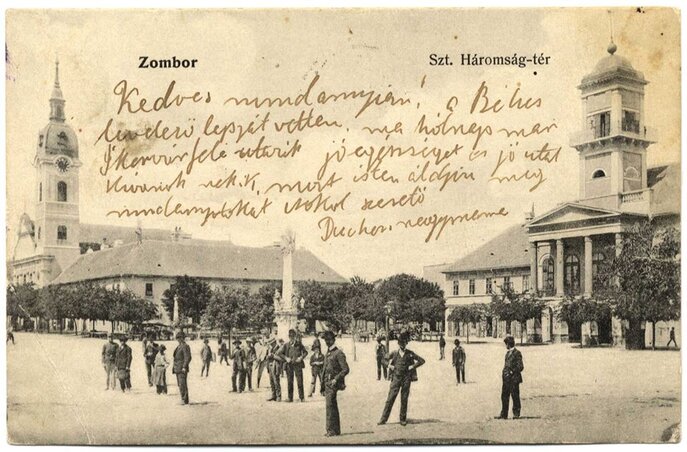 Zombor
Szt. Háromság-tér
Kedves mindannyian! a Béliss
levelező lapját vettem, ma holnap már
felé utazik jó egésséget és jó utat
kivánok nekik, most isten áldjon meg
mindanyotokat csokol szerető
Duchon nagymama